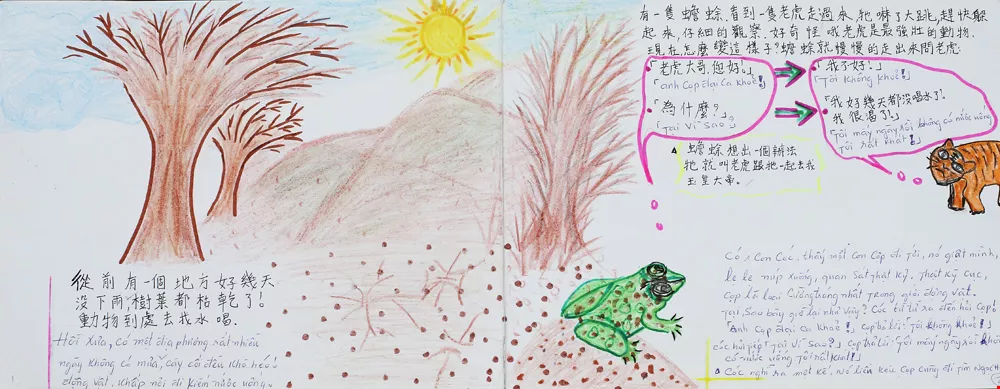 從前有一個地方好幾天
沒下雨,樹葉都枯乾了!
動物到處去找水喝.
Hồi Xưa, có một địa phương rất nhiều
ngày không có mưa, cây cối đều khô héo!
động vật, khắp nơi đi kiếm nước uống.
有一隻蟾蜍,看到一隻老虎走過來,牠嚇了大跳,趕快躲
起來,仔細的觀察.好奇怪哦老虎是最強壯的動物.
現在怎麼變這樣子?蟾蜍就慢慢的走出來問老虎:
「老虎大哥,您好!」
「anh Cọp đại ca Khoẻ!」
「為什麼?」
「Tại Vì Sao?」
「我不好!」
「Tôi Không Khoẻ!」
「我好幾天都沒喝水了!
我很渴了!」
「Tôi mấy ngày rồi không có nước uống
Tôi rất Khát!」
蟾蜍想出一個辦法
牠就叫老虎跟牠一起去找
玉皇大帝。
Có 1 Con Cóc, thấy một Con Cọp đi tới, nó giật mình,
núp xuống, quan Sát thật Kỹ, thật Kỳ Cục,
Cọp là loại Cường tráng nhất trong giới động vật.
Tại Sao bây giờ lại như vậy? Cóc từ từ ra đến hỏi Cọp:
「Anh Cọp đại ca Khoẻ!」 Cọp trả lời: 「Tôi Không Khoẻ!」
Cóc hỏi tiếp 「Tại Vì Sao?」 Cọp trả lời: 「Tôi mấy ngày rồi
có nước uống Tôi rất Khát!」
Cóc nghĩ ra một kế, nó liền kêu Cọp cùng đi tìm ngọc